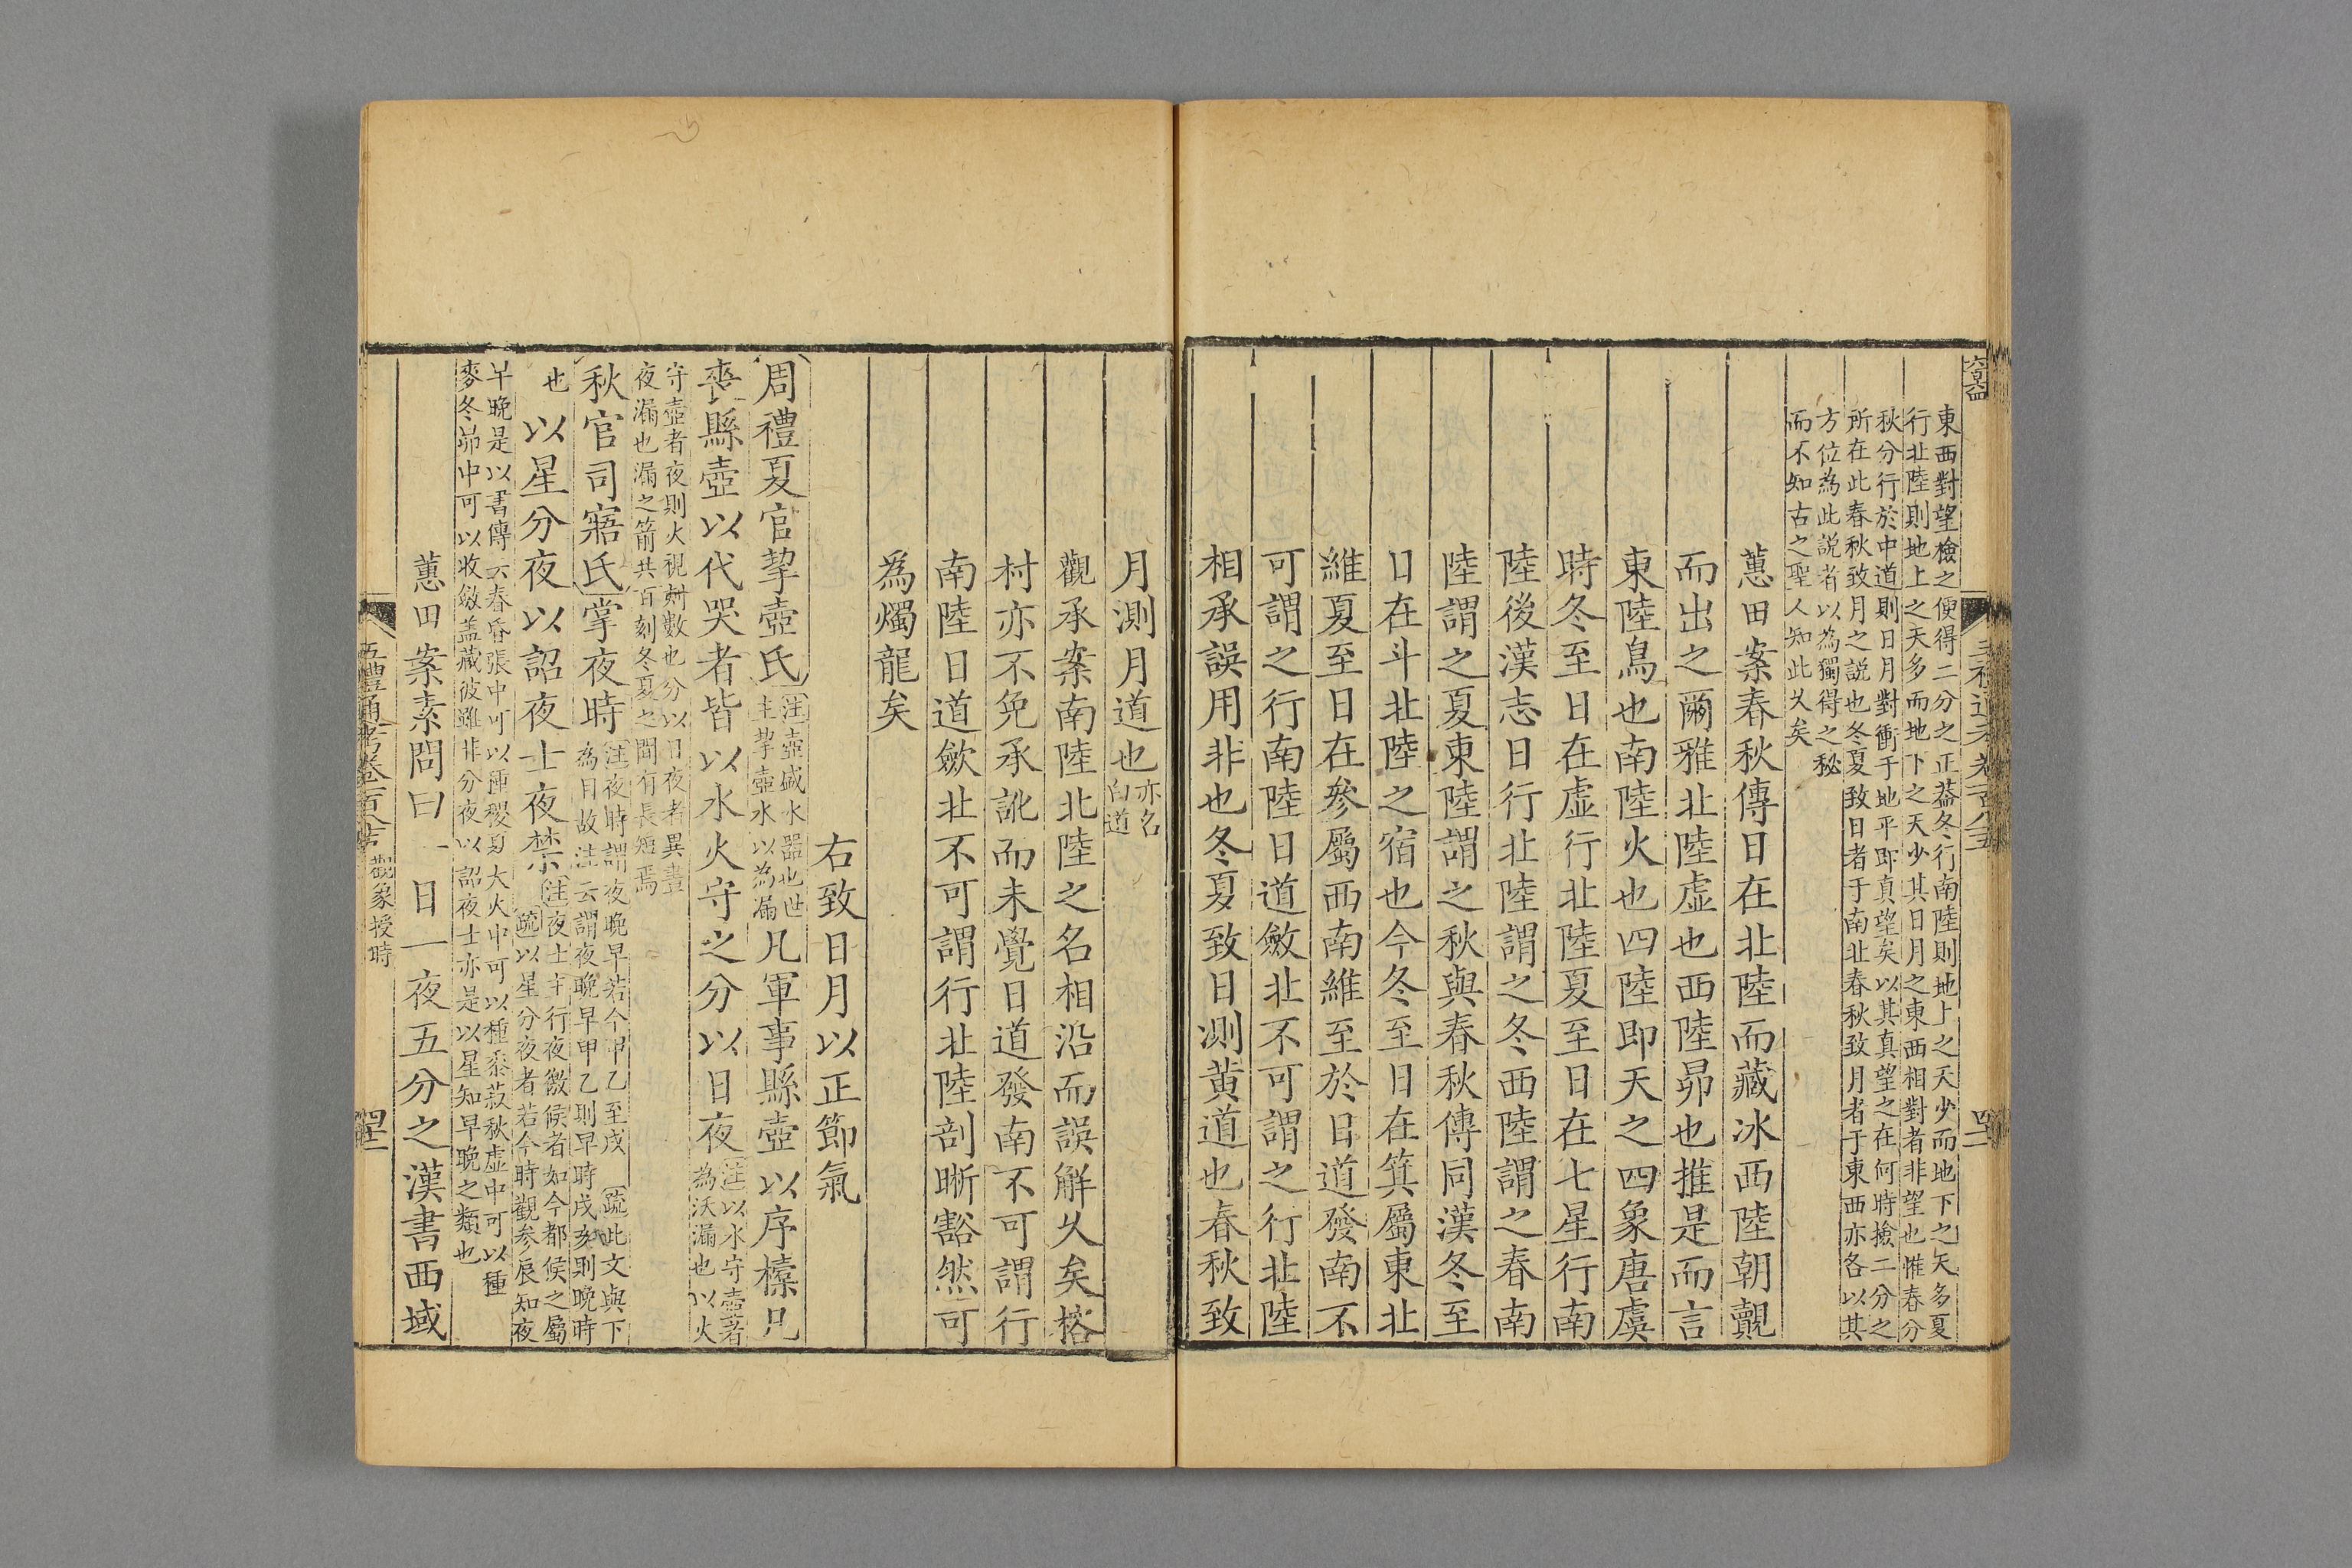 東西對望檢之便得二分之正蓋冬行南陸則地上之天少而地下之天多夏
行北陸則地上之天多而地下之天少其日月之東西相對者非望也惟春分
秋分行於中道則日月對衝于地平即真望矣以其真望之在何時撿二分之
所在此春秋致月之説也冬夏致日者于南北春秋致月者于東西亦各以其
方位為此説者以為獨得之秘
而不知古之聖人知此久矣
蕙田案春秋傳日在北陸而藏冰西陸朝覿
而出之爾雅北陸虛也西陸昴也推是而言
東陸鳥也南陸火也四陸即天之四象唐虞
時冬至日在虛行北陸夏至日在七星行南
陸後漢志日行北陸謂之冬西陸謂之春南
陸謂之夏東陸謂之秋與春秋傳同漢冬至
日在斗北陸之宿也今冬至日在箕屬東北
維夏至日在參屬西南維至於日道發南不
可謂之行南陸日道斂北不可謂之行北陸
相承誤用非也冬夏致日測黄道也春秋致
月測月道也亦名
白道
觀承案南陸北陸之名相沿而誤解久矣榕
村亦不免承訛而未覺日道發南不可謂行
南陸日道斂北不可謂行北陸剖晰豁然可
為燭龍矣
右致日月以正節氣
周禮夏官挈壺氏注壺盛水器也世
主挈壺水以為漏凡軍事縣壺以序㯿凡
喪縣壺以代哭者皆以水火守之分以日夜注以水守壺者
為沃漏也以火
守壺者夜則火視刻數也分以日夜者異晝
夜漏也漏之箭共百刻冬夏之間有長短焉
秋官司寤氏掌夜時注夜時謂夜晚早若今甲乙至戌
疏此文與下
為目故注云謂夜晚早甲乙則早時戌亥則晚時
也以星分夜以詔夜士夜禁注夜士主行夜徼候者如今都候之屬
疏以星分夜者若今時觀參辰知夜
早晚是以書傳云春昏張中可以種稷夏大火中可以種黍菽秋虛中可以種
麥冬昴中可以收斂蓋藏彼雖非分夜以詔夜士亦是以星知早晚之類也
蕙田案素問曰一日一夜五分之漢書西域
五禮通考卷一百八十五
觀象授時